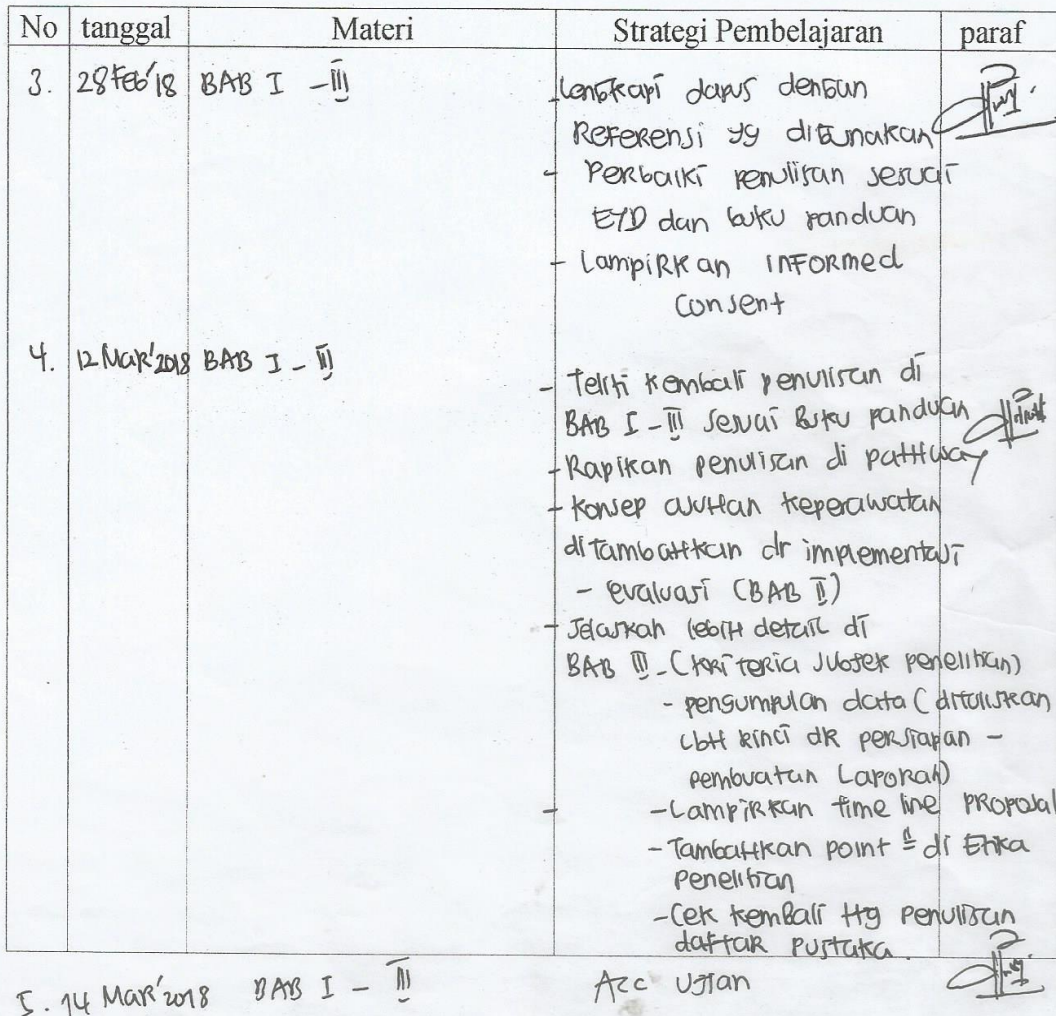 No tanggal Materi Strategi Pembelajaran paraf
3. 28 Feb'18 BAB I - III - Lengkapi dapus dengan
Referensi yg digunakan
- Perbaiki penulisan sesuai
EYD dan buku panduan
- Lampirkan informed
consent
4. 12 Mar'2018 BAB I - III
- Teliti kembali penulisan di
BAB I - III sesuai Buku panduan
- Rapikan penulisan di pathway
- Konsep asuhan keperawatan
ditambahkan dr implementasi
- evaluasi (BAB II)
- Jelaskan lebih detail di
BAB III - (kriteria subjek penelitian)
- pengumpulan data (dituliskan
lbh rinci dr persiapan -
pembuatan Laporan)
- - Lampirkan time line proposal
- Tambahkan point di Etika
Penelitian
- Cek kembali ttg penulisan
daftar pustaka.
5. 14 Mar'2018 BAB I - III Acc Ujian